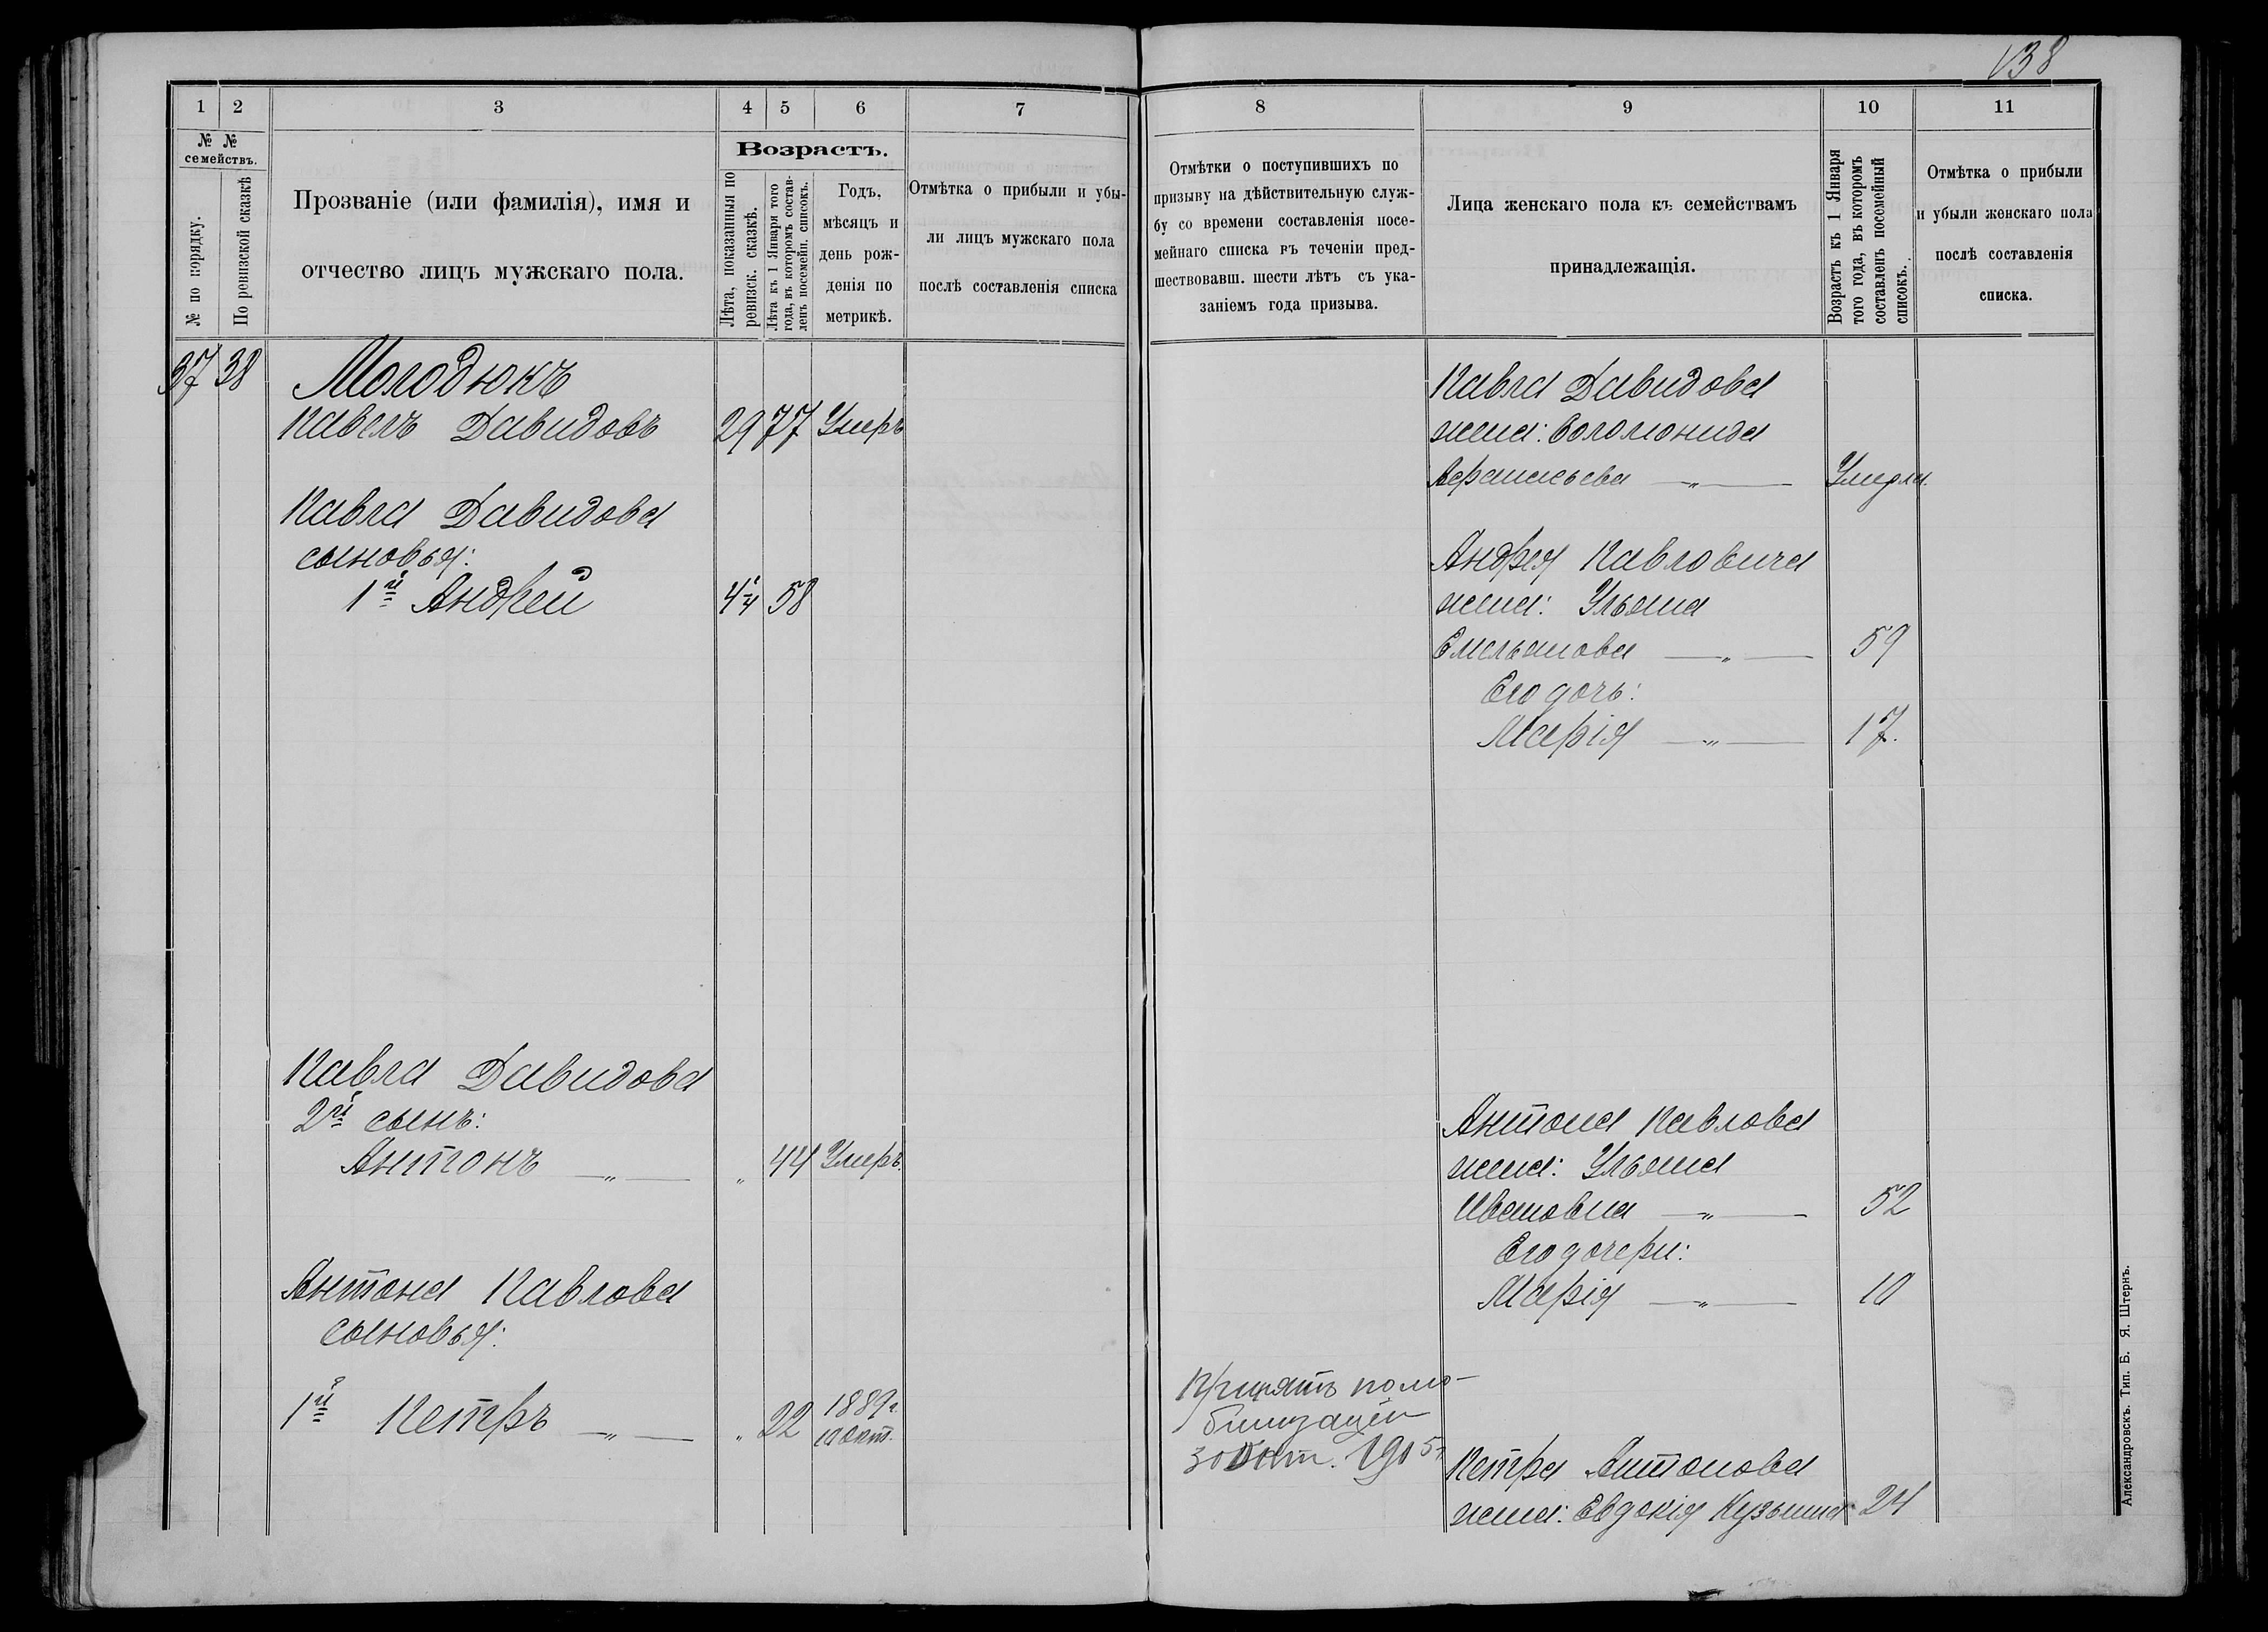 138
1 2 3 4 5 6 7
№ № семействъ.
№ по порядку.
По ревизской сказкѣ
Прозваніе (или фамилія), имя и
отчество лицъ мужскаго пола.
Возрастъ.
Лѣта, показанныя по
ревизск. сказкѣ.
Лѣта къ 1 Января того
года, въ которомъ состав-
ленъ посемейн. списокъ.
Годъ,
мѣсяцъ и
день рож-
денія по
метрикѣ.
Отмѣтка о прибыли и убы-
ли лицъ мужскаго пола
послѣ составленія списка
37 38 Молодюкъ
Павелъ Давидовъ 29 77 Умеръ
Павла Давидова
сыновья:
1й Андрей 4¼ 58
Павла Давидова
2й сынъ:
Антонъ — „ — „ 44 Умеръ.
Антона Павлова
сыновья:
1й Петръ — „ — „ 22 1889г.
10 Окт.
8 9 10 11
Отмѣтки о поступившихъ по
призыву на дѣйствительную служ-
бу со времени составленія посе-
мейнаго списка въ теченіи пред-
шествовавш. шести лѣтъ съ ука-
заніемъ года призыва.
Лица женскаго пола къ семействамъ
принадлежащія.
Возрастъ къ 1 Января
того года, въ которомъ
составленъ посемейный
списокъ.
Отмѣтка о прибыли
и убыли женскаго пола
послѣ составленія
списка.
Павла Давидова
жена: Соломонида
Афанасьева — „ — Умерла.
Андрея Павловича
жена: Ульяна
Емельянова — „ — 59
Его дочь:
Марія — „ — 17.
Антона Павлова
жена: Ульяна
Ивановна — „ — 52
Его дочери:
Марія — „ — 10
Принятъ по мо-
билизаціи
30 Окт. 1905г
Петра Антонова
жена: Евдокія Кузьмина 24
Александровскъ. Тип. Б. Я. Штернъ.